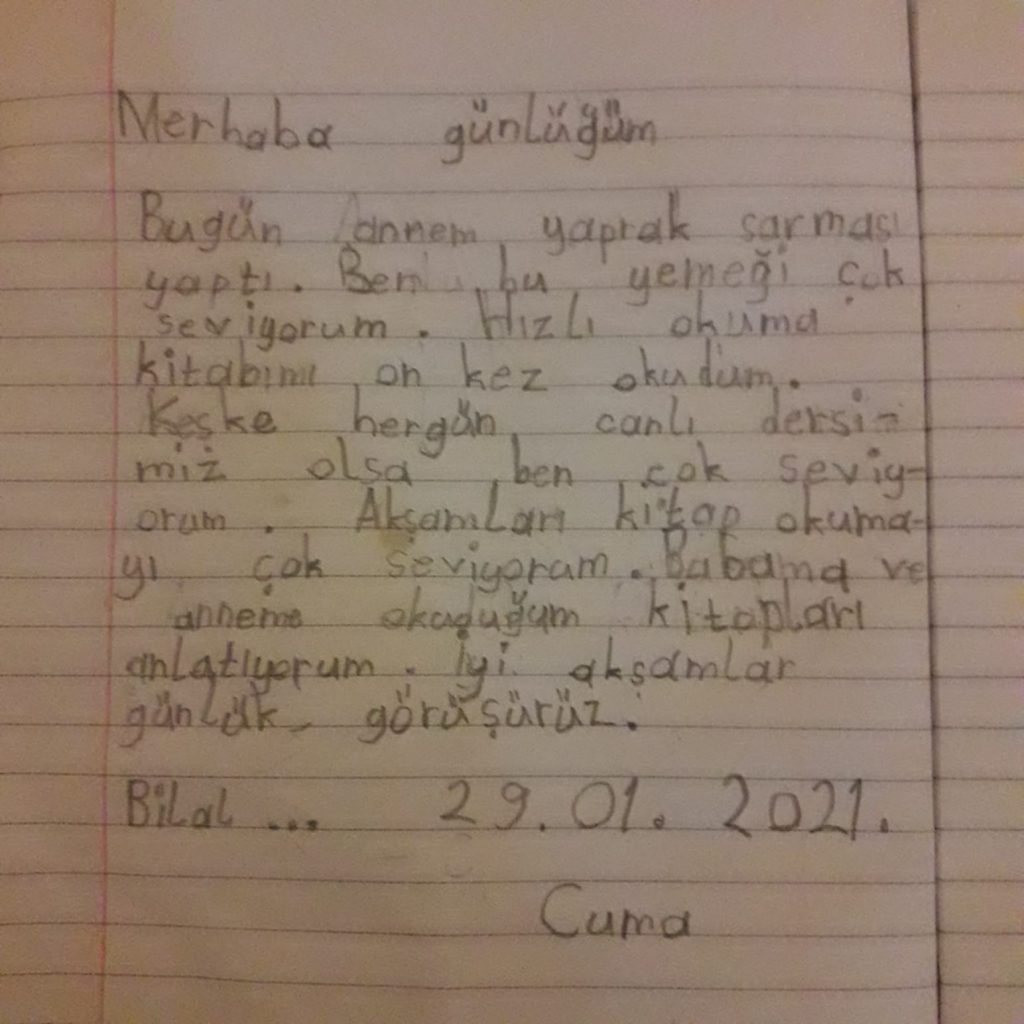 Merhaba günlüğüm
Bugün annem yaprak sarması
yaptı. Ben bu yemeği çok
seviyorum. Hızlı okuma
kitabımı on kez okudum.
Keşke hergün canlı dersi-
miz olsa ben çok seviy-
orum. Akşamları kitap okuma-
yı çok seviyorum. Babama ve
anneme okuduğum kitapları
anlatıyorum. İyi akşamlar
günlük görüşürüz.
Bilal ... 29.01.2021.
Cuma